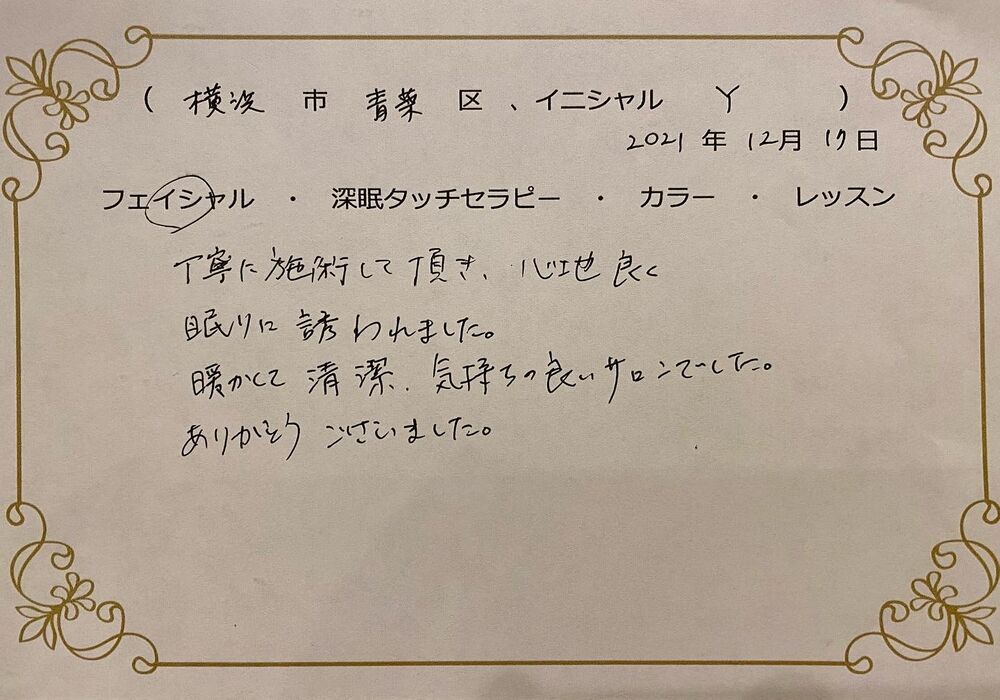 ( 横浜 市 青葉 区 、イニシャル Y )
2021 年 12月 17日
フェイシャル ・ 深眠タッチセラピー ・ カラー ・ レッスン
丁寧に施術して頂き、心地良く
眠りに誘われました。
暖かくて清潔、気持ちの良いサロンでした。
ありがとうございました。